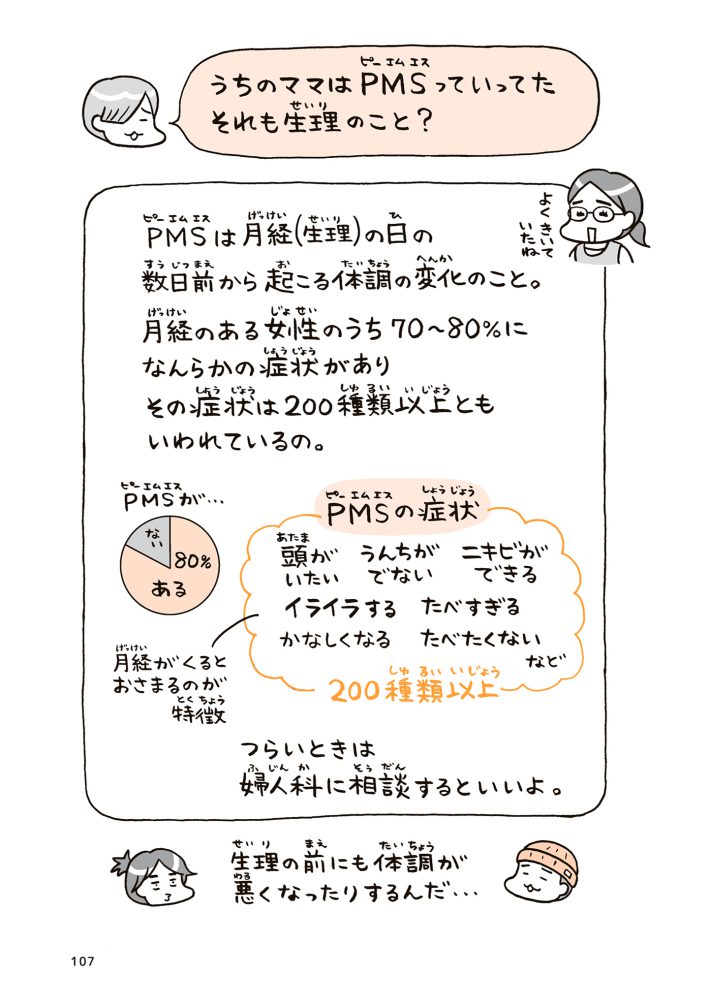 うちのママはPMSっていってた
それも生理のこと？
よくきいて
いたね
PMSは月経(生理)の日の
数日前から起こる体調の変化のこと。
月経のある女性のうち70～80%に
なんらかの症状があり
その症状は200種類以上とも
いわれているの。
PMSが…
ない
80%
ある
PMSの症状
頭が
いたい
うんちが
でない
ニキビが
できる
イライラする
たべすぎる
かなしくなる
たべたくない
など
200種類以上
月経がくると
おさまるのが
特徴
つらいときは
婦人科に相談するといいよ。
生理の前にも体調が
悪くなったりするんだ…
107